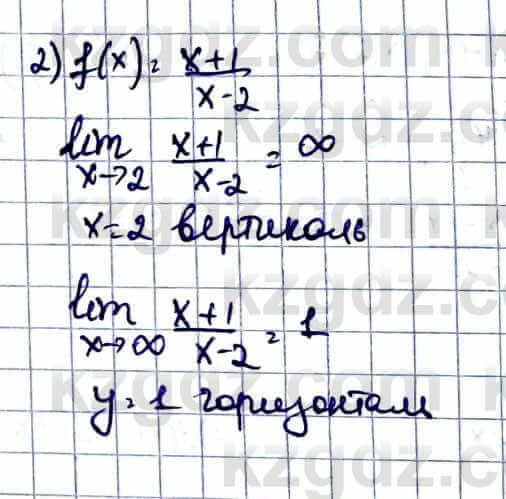 2) f(x) = x+1 / x-2
lim x→2 x+1 / x-2 = ∞
x=2 вертикаль
lim x→∞ x+1 / x-2 = 1
y=1 горизонталь